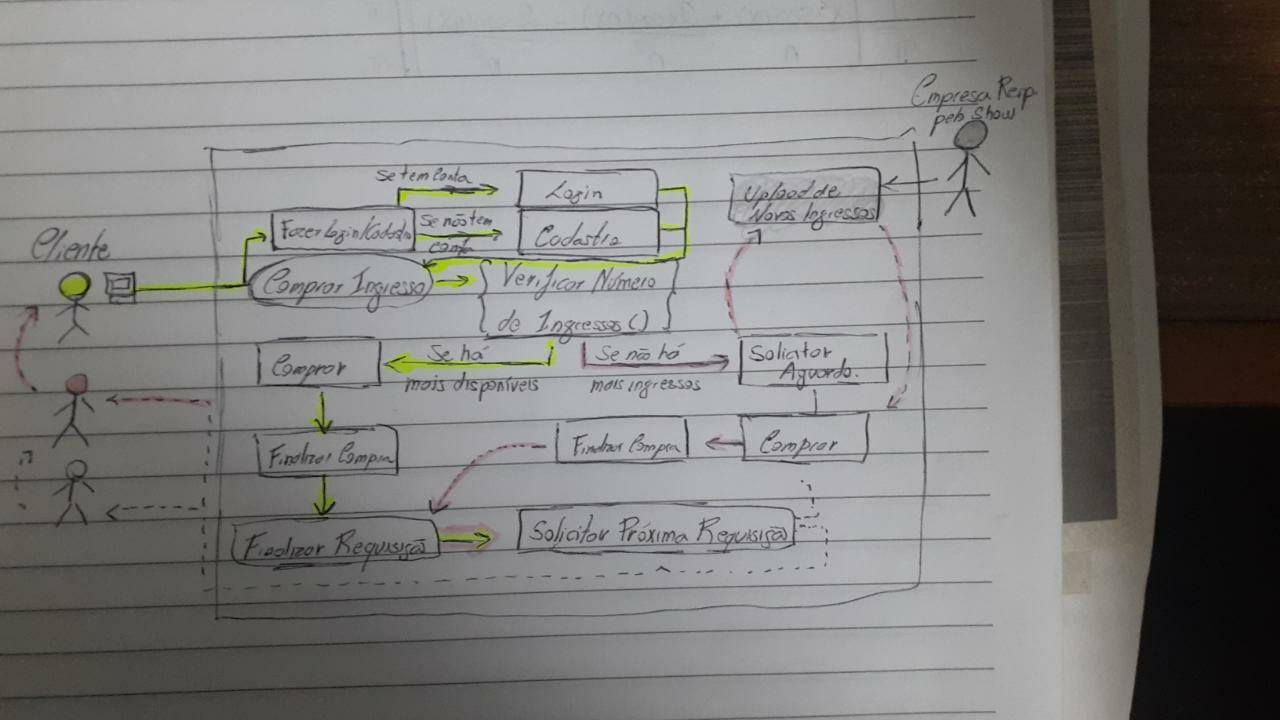 Empresa Resp.
pelo Show
Se tem Conta
Login
Upload de
Novos Ingressos
Fazer Login/Cadastro
Se não tem
conta
Cadastro
Cliente
Comprar Ingresso
Verificar Número
de Ingressos()
Comprar
Se há
mais disponíveis
Se não há
mais ingressos
Solicitar
Aguardo.
Finalizar Compra
Finalizar Compra
Comprar
Finalizar Requisição
Solicitar Próxima Requisição